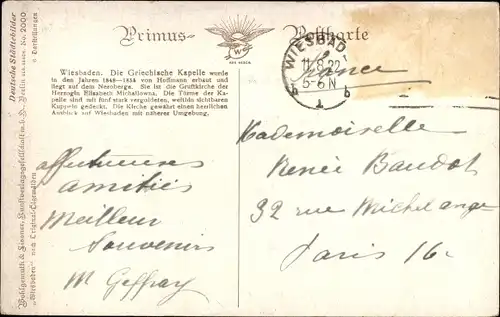 Primus-Postkarte
Wiesbaden. Die Griechische Kapelle wurde
in den Jahren 1849—1854 von Hoffmann erbaut und
liegt auf dem Neroberge. Sie ist die Gruftkirche der
Herzogin Elisabeth Michailowna. Die Türme der Ka-
pelle sind mit fünf stark vergoldeten, weithin sichtbaren
Kuppeln gedeckt. Die Kirche gewährt einen herrlichen
Ausblick auf Wiesbaden mit näherer Umgebung.
affectueuses
amitiés
Meilleur
Souvenirs
M Geffray
WIESBAD
11.8.22
5-6N
b 1 b
France
Mademoiselle
Renée Baudot
32 rue Michel ange
Paris 16e
Deutsche Städtebilder
No. 2000
"Wiesbaden" nach Original-Ölgemälden